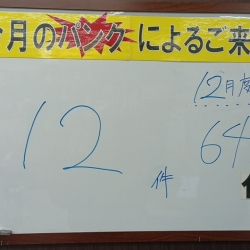 月のパンクによるご来
12月
12
64
件